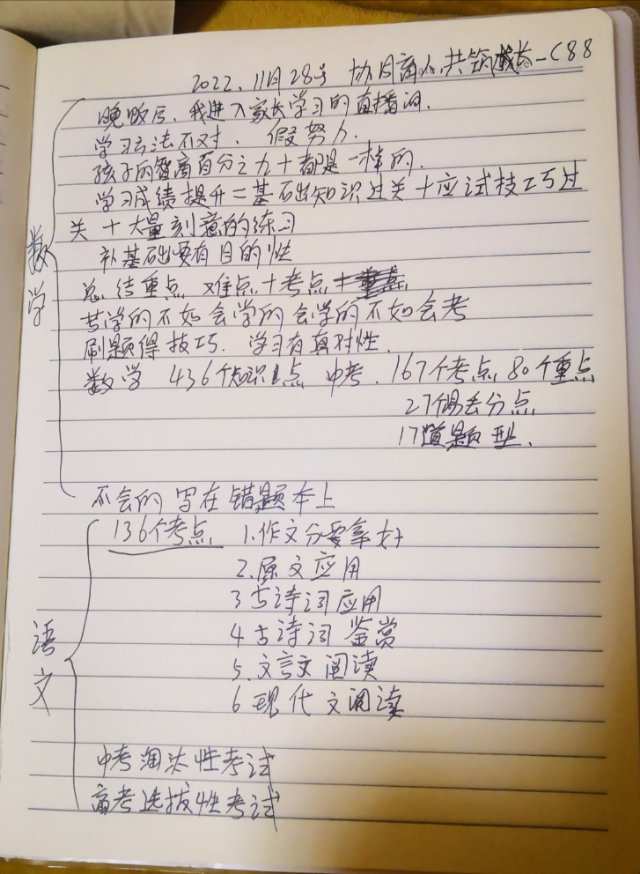 2022.11月28号 协同育人共筑成长—C88
晚饭后,我进入家长学习的直播间.
学习方法不对. 假努力.
孩子的智商百分之九十都是一样的.
学习成绩提升=基础知识过关+应试技巧过
关+大量刻意的练习
补基础要有目的性
总结重点 难点+考点
苦学的不如会学的 会学的不如会考
刷题得技巧. 学习有真对性.
数学 436个知识点 中考. 167个考点 80个重点
27个易丢分点
17道题型.
不会的写在错题本上
数学
136个考点 1.作文分要拿好
2.原文应用
3古诗词应用
4古诗词 鉴赏
5.文言文阅读
6现代文阅读
语文
中考淘汰性考试
高考选拔性考试